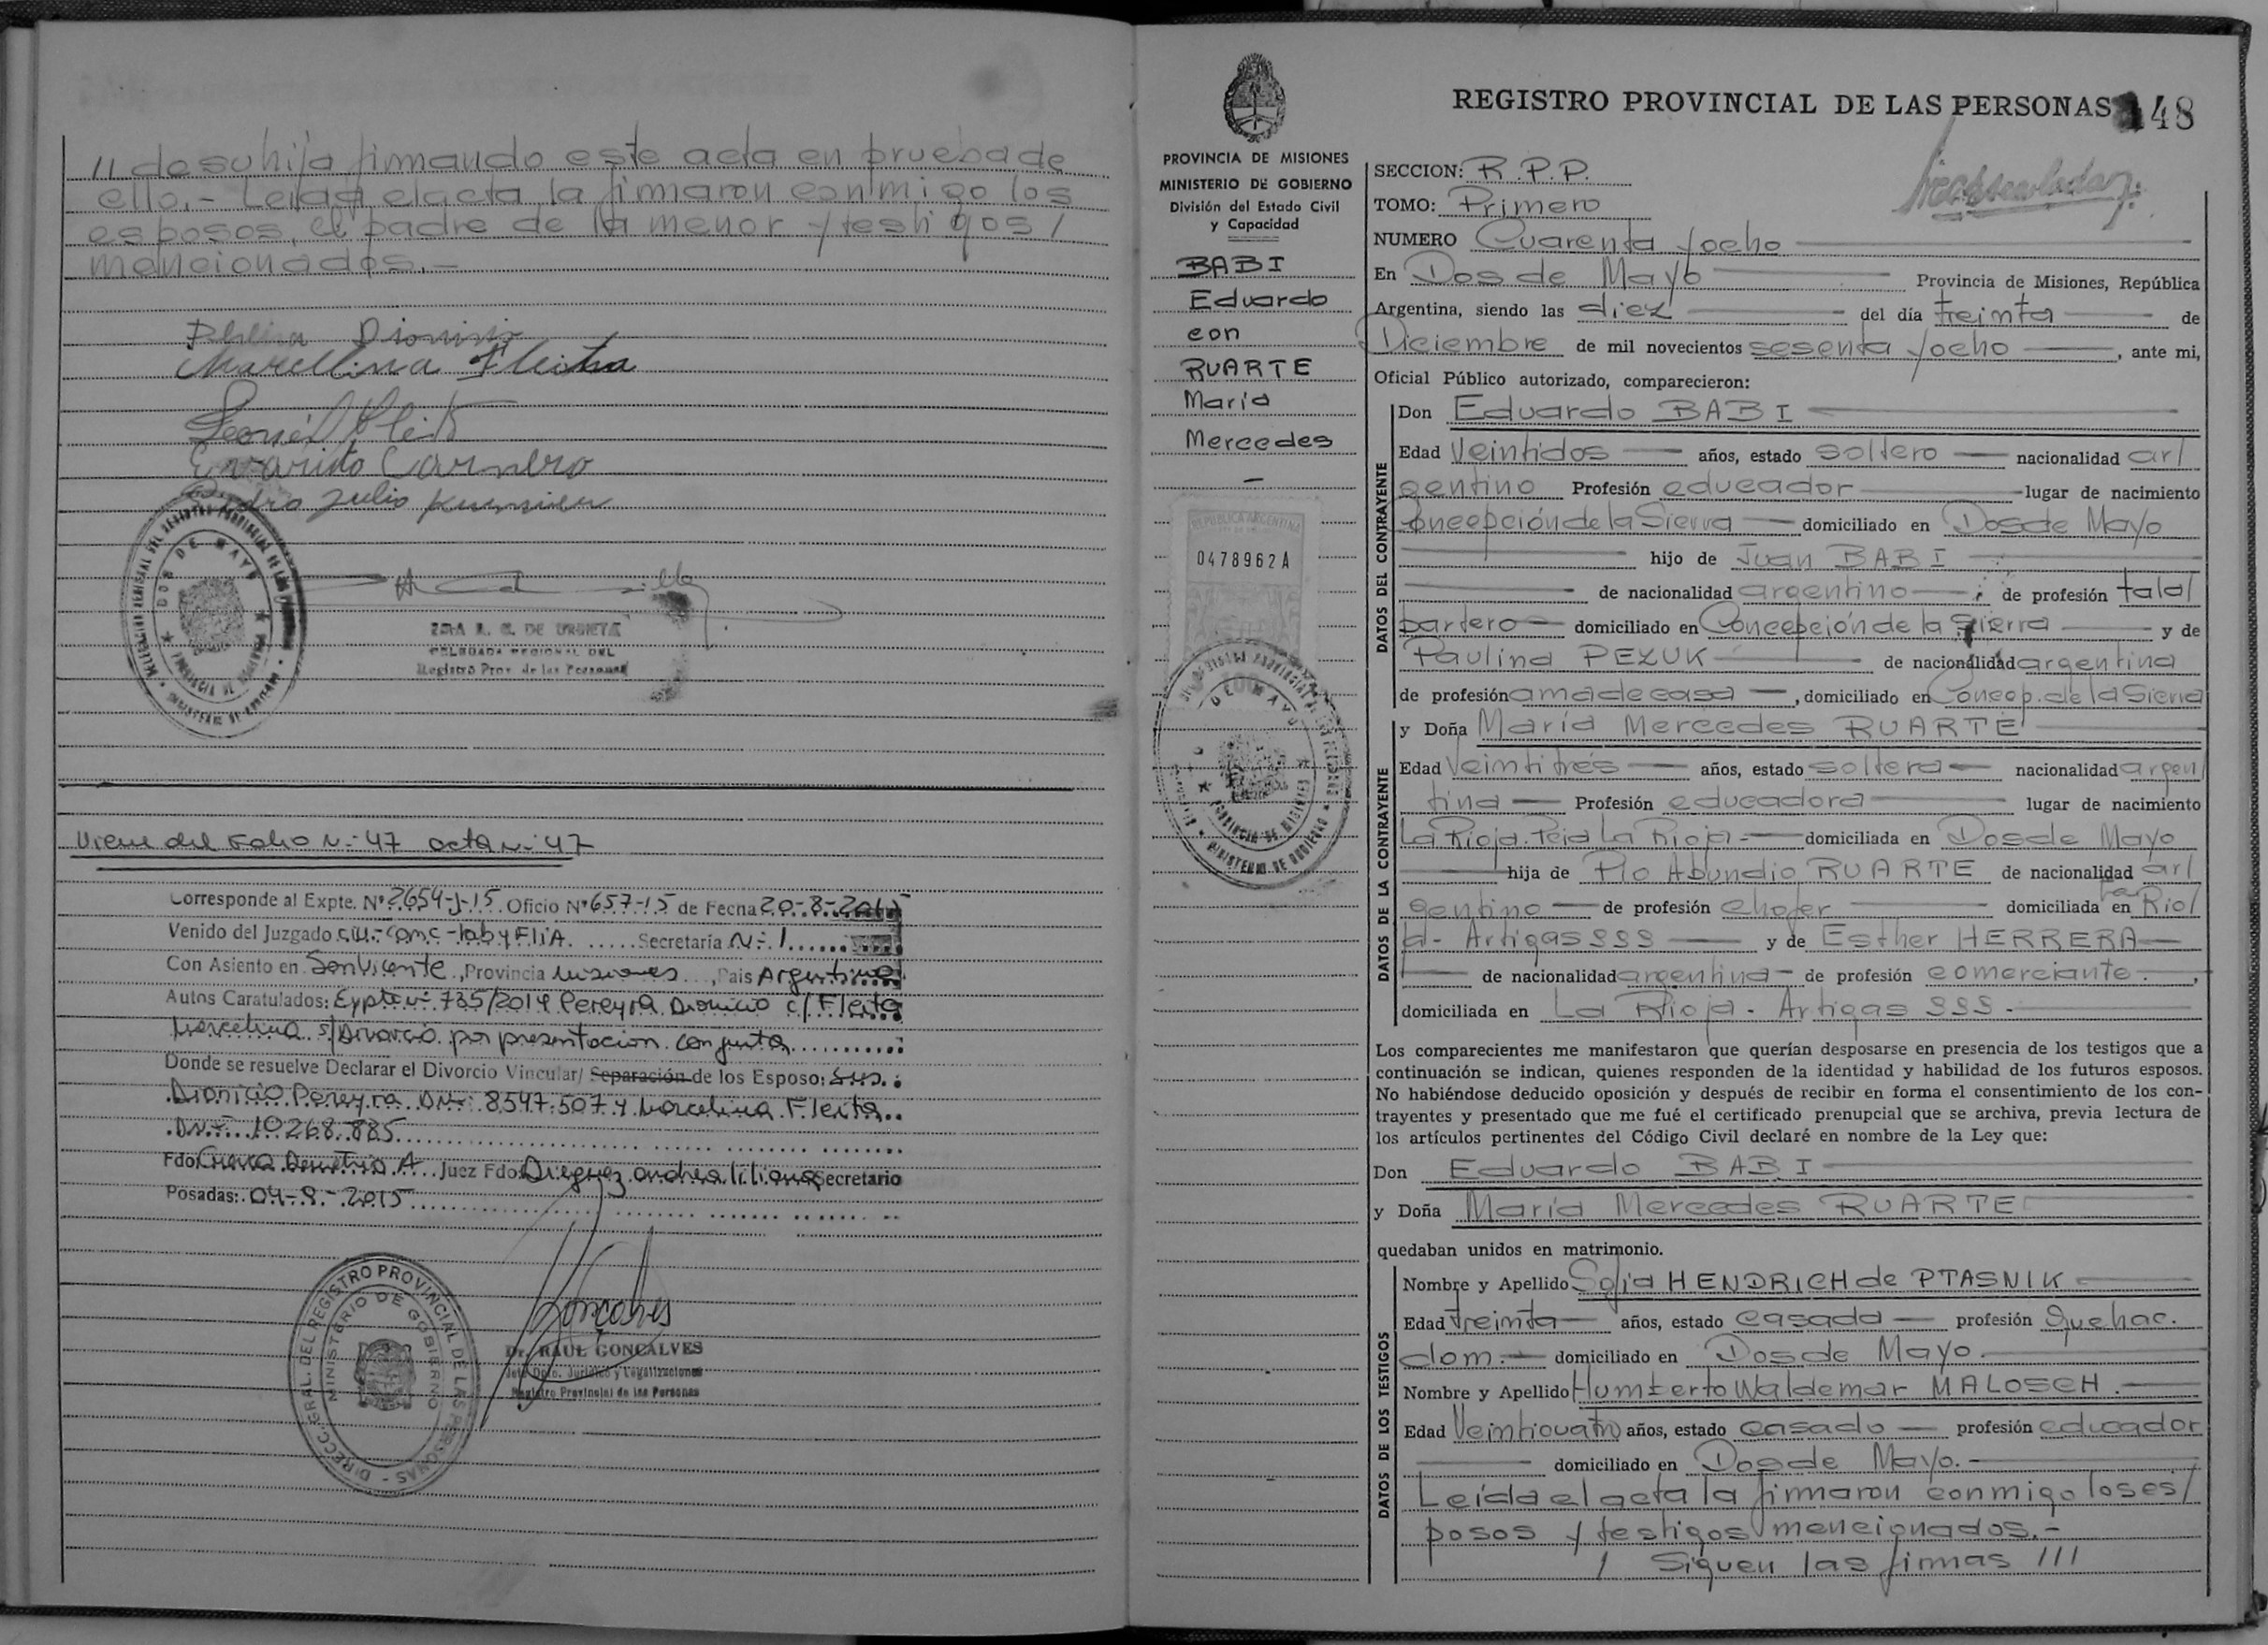 // de su hija firmando este acta en prueba de
ello.- Leída el acta la firmaron conmigo los
esposos, el padre de la menor y testigos /
mencionados.-
Dionisio
Marcelina Fleita
Evaristo Carnero
Pedro Julio
DOS DE MAYO
DE URBIETA
DELEGADA REGIONAL DEL
Registro Prov. de las Personas
Viene del Folio N.- 47 acta N.- 47
Corresponde al Expte. Nº 2654-J-15 Oficio Nº 657-15 de Fecha 20-8-2015
Venido del Juzgado Civ.-Com.-Lab y FliA. Secretaria N.- 1
Con Asiento en San Vicente, Provincia Misiones, Pais Argentina
Autos Caratulados: Expte N.- 735/2014 Pereyra Dionicio c/ Fleita
Marcelina s/ Divorcio por presentacion conjunta
Donde se resuelve Declarar el Divorcio Vincular/ Separación de los Esposo: Sres.
Dionicio Pereyra DN.-: 8547.507 y Marcelina Fleita
DN.- 10268.885
Fdo: Cuenca Demetrio A. Juez Fdo: Dieguez Andrea Liliana Secretario
Posadas: 04-9-2015
DIRECC. GRAL. DEL REGISTRO PROVINCIAL DE LAS PERSONAS
MINISTERIO DE GOBIERNO
Gonçalves
Dr. RAUL GONÇALVES
Jefe Dpto. Jurídico y Legalizaciones
Registro Provincial de las Personas
REGISTRO PROVINCIAL DE LAS PERSONAS 48
PROVINCIA DE MISIONES
MINISTERIO DE GOBIERNO
División del Estado Civil
y Capacidad
BABI
Eduardo
con
RUARTE
María
Mercedes
-
REPUBLICA ARGENTINA
0478962A
DE MAYO
PROVINCIA DE MISIONES
MINISTERIO DE GOBIERNO
SECCION: R.P.P.
TOMO: Primero
NUMERO Cuarenta y ocho
En Dos de Mayo Provincia de Misiones, República
Argentina, siendo las diez del día treinta de
Diciembre de mil novecientos sesenta y ocho, ante mi,
Oficial Público autorizado, comparecieron:
DATOS DEL CONTRAYENTE
Don Eduardo BABI
Edad Veintidos años, estado soltero nacionalidad ar/
gentino Profesión educador lugar de nacimiento
Concepción de la Sierra domiciliado en Dos de Mayo
hijo de Juan BABI
de nacionalidad argentino de profesión tala/
bartero domiciliado en Concepción de la Sierra y de
Paulina PEZUK de nacionalidad argentina
de profesión ama de casa, domiciliado en Concep. de la Sierra
DATOS DE LA CONTRAYENTE
y Doña María Mercedes RUARTE
Edad Veintitrés años, estado soltera nacionalidad argen/
tina Profesión educadora lugar de nacimiento
La Rioja. Pcia La Rioja.- domiciliada en Dos de Mayo
hija de Pío Abundio RUARTE de nacionalidad ar/
gentino de profesión chofer domiciliada en La Rio/
ja- Artigas 999 y de Esther HERRERA
de nacionalidad argentina de profesión comerciante.,
domiciliada en La Rioja - Artigas 999.-
Los comparecientes me manifestaron que querían desposarse en presencia de los testigos que a
continuación se indican, quienes responden de la identidad y habilidad de los futuros esposos.
No habiéndose deducido oposición y después de recibir en forma el consentimiento de los con-
trayentes y presentado que me fué el certificado prenupcial que se archiva, previa lectura de
los artículos pertinentes del Código Civil declaré en nombre de la Ley que:
Don Eduardo BABI
y Doña María Mercedes RUARTE
quedaban unidos en matrimonio.
DATOS DE LOS TESTIGOS
Nombre y Apellido Sofía HENDRICH de PTASNIK
Edad treinta años, estado casada profesión Quehac.
dom.- domiciliado en Dos de Mayo.
Nombre y Apellido Humberto Waldemar MALOSCH.
Edad Veinticuatro años, estado casado profesión educador
domiciliado en Dos de Mayo.-
Leída el acta la firmaron conmigo los es/
posos y testigos mencionados.-
/ Siguen las firmas ///